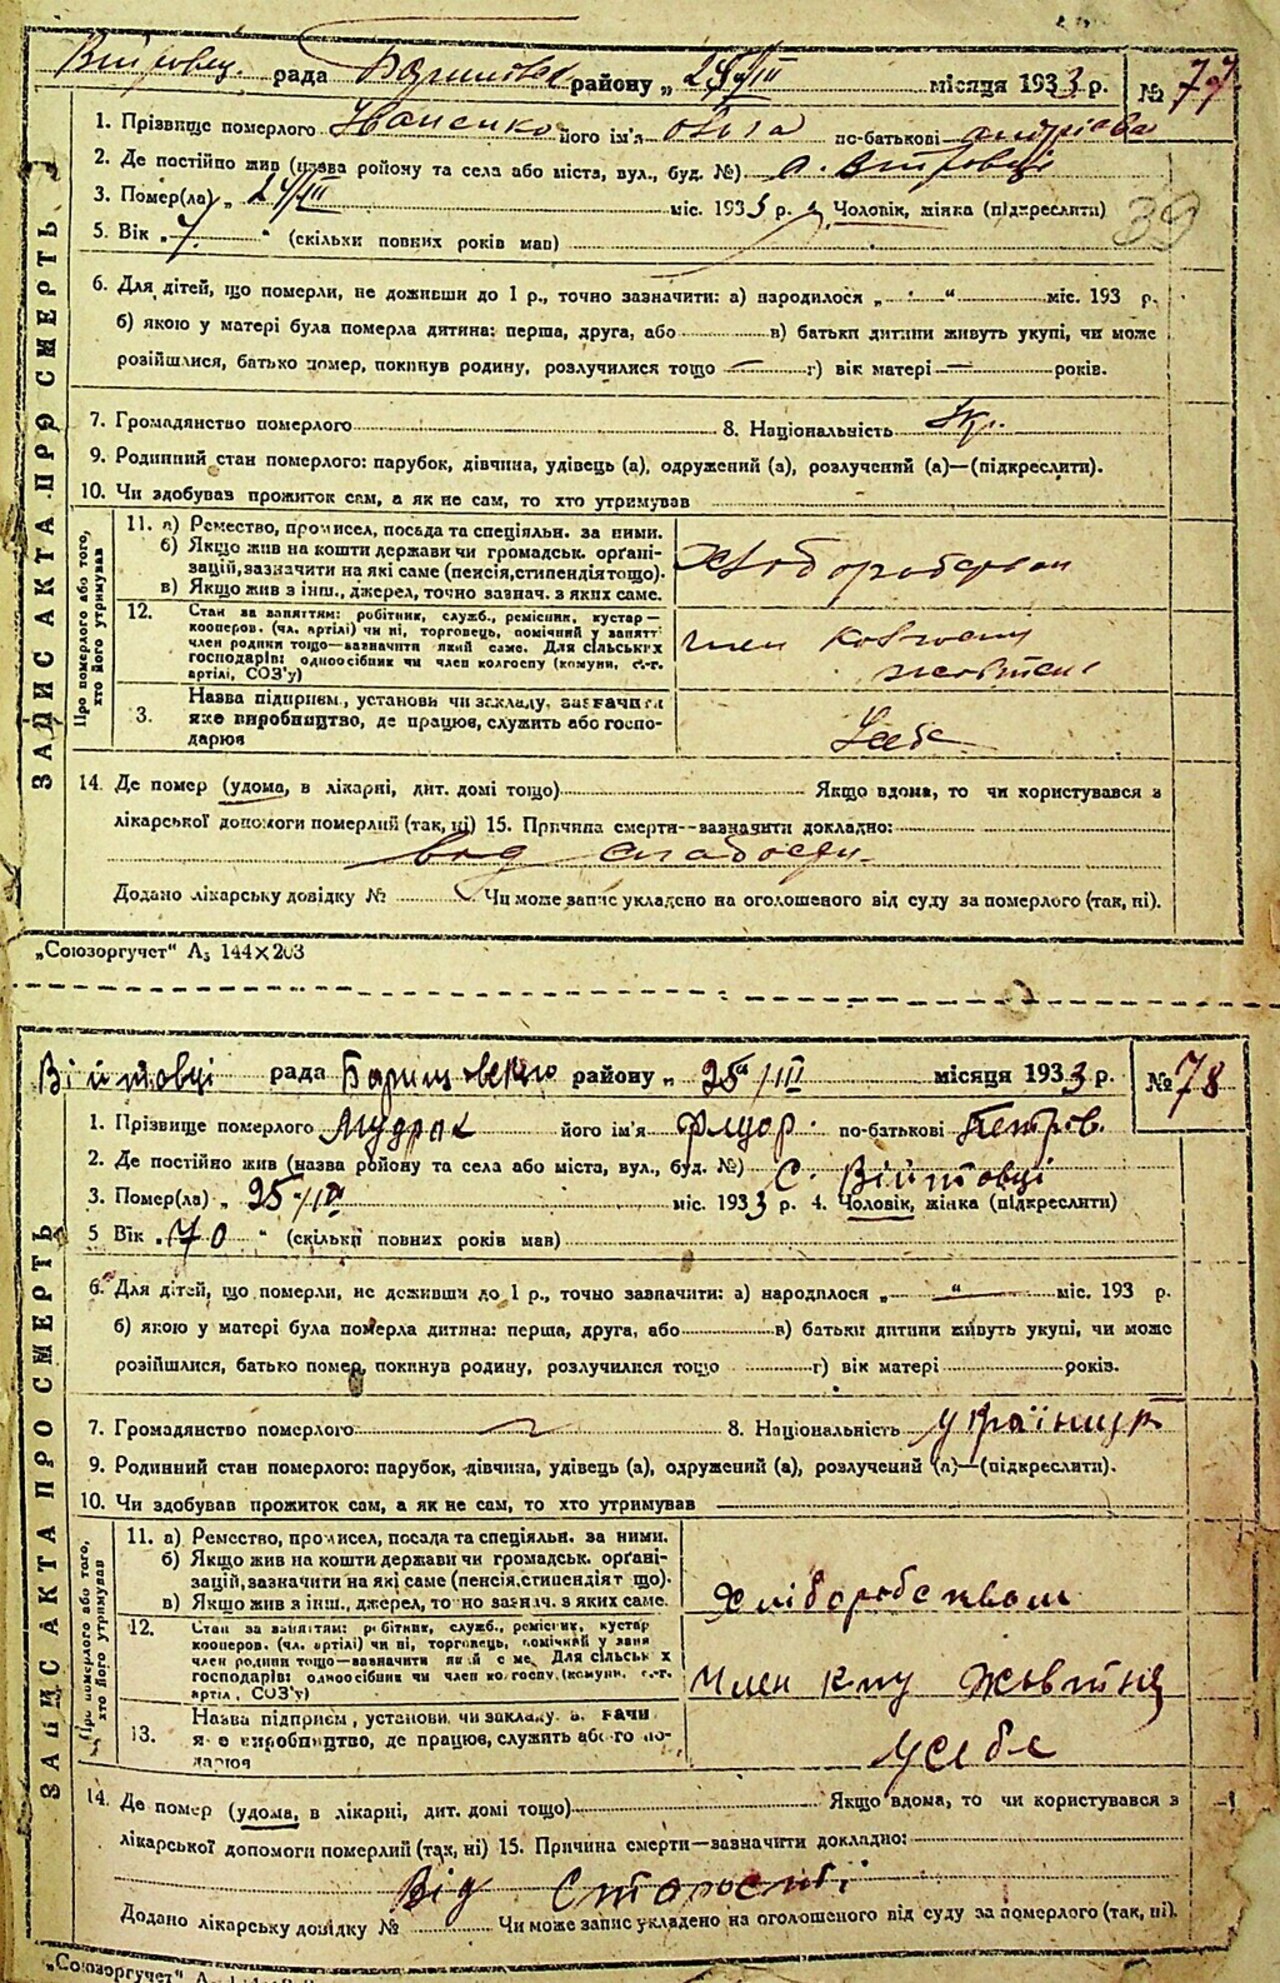 рада району „ 24/III місяця 1933 р. № 77
1. Прізвище померлого Іваненко його ім'я Ольга по-батькові Андріївна
2. Де постійно жив (назва району та села або міста, вул., буд. №) с. Війтовці
3. Помер(ла) „ 24/III міс. 1933 р. 4. Чоловік, жінка (підкреслити)
39
5. Вік „ 7 “ (скільки повних років мав)
6. Для дітей, що померли, не доживши до 1 р., точно зазначити: а) народилося „ “ міс. 193 р.
б) якою у матері була померла дитина: перша, друга, або в) батьки дитини живуть укупі, чи може
розійшлися, батько помер, покинув родину, розлучилися тощо г) вік матері — років.
7. Громадянство померлого 8. Національність Укр.
9. Родинний стан померлого: парубок, дівчина, удівець (а), одружений (а), розлучений (а)—(підкреслити).
10. Чи здобував прожиток сам, а як не сам, то хто утримував
ЗАПИС АКТА ПРО СМЕРТЬ
Про померлого або того, хто його утримував
11. а) Ремество, промисел, посада та спеціяльн. за ними.
б) Якщо жив на кошти держави чи громадськ. орґані-
зацій, зазначити на які саме (пенсія, стипендія тощо).
в) Якщо жив з інш., джерел, точно зазнач. з яких саме.
Хліборобством
12. Стан за заняттям: робітник, служб., ремісник, кустар—
кооперов. (чл. артілі) чи ні, торговець, помічний у занятт
член родини тощо—зазначити який саме. Для сільських
господарів: одноосібник чи член колгоспу (комуни, с.-г.
артілі, СОЗ'у)
член
3. Назва підприєм., установи чи закладу, зазначити
яке виробництво, де працює, служить або госпо-
дарює
Усебе
14. Де помер (удома, в лікарні, дит. домі тощо) Якщо вдома, то чи користувався з
лікарської допомоги померлий (так, ні) 15. Причина смерти—зазначити докладно:
від слабости
Додано лікарську довідку № Чи може запис укладено на оголошеного від суду за померлого (так, ні).
„Союзоргучет“ А₅ 144×203
Війтовці рада Баришовського району „ 25/III місяця 1933 р. № 78
1. Прізвище померлого Мудрак його ім'я Флор по-батькові Петрів.
2. Де постійно жив (назва району та села або міста, вул., буд. №) С. Війтовці
3. Помер(ла) „ 25/III міс. 1933 р. 4. Чоловік, жінка (підкреслити)
5 Вік „ 70 “ (скільки повних років мав)
6. Для дітей, що померли, не доживши до 1 р., точно зазначити: а) народилося „ “ міс. 193 р.
б) якою у матері була померла дитина: перша, друга, або в) батьки дитини живуть укупі, чи може
розійшлися, батько помер, покинув родину, розлучилися тощо г) вік матері років.
7. Громадянство померлого 8. Національність Українець
9. Родинний стан померлого: парубок, дівчина, удівець (а), одружений (а), розлучений (а)—(підкреслити).
10. Чи здобував прожиток сам, а як не сам, то хто утримував
ЗАПИС АКТА ПРО СМЕРТЬ
Про померлого або того, хто його утримував
11. а) Ремество, промисел, посада та спеціяльн. за ними.
б) Якщо жив на кошти держави чи громадськ. орґані-
зацій, зазначити на які саме (пенсія, стипендія т що).
в) Якщо жив з інш., джерел, то но зазнач. з яких саме.
Хліборобством
12. Стан за заняттям: робітник, служб., ремісник, кустар
кооперов. (чл. артілі) чи ні, торговець, помічний у заня
член родини тощо—зазначити який саме. Для сільських
господарів: одноосібник чи член колгоспу (комуни, с.-г.
артіл., СОЗ'у)
Член к-пу Жовтня
13. Назва підприєм, установи чи закладу, зазначи
яке виробництво, де працює, служить або го по-
дарює
Усебе
14. Де помер (удома, в лікарні, дит. домі тощо) Якщо вдома, то чи користувався з
лікарської допомоги померлий (так, ні) 15. Причина смерти—зазначити докладно:
Від Старості
Додано лікарську довідку № Чи може запис укладено на оголошеного від суду за померлого (так, ні).
„Союзоргучет“